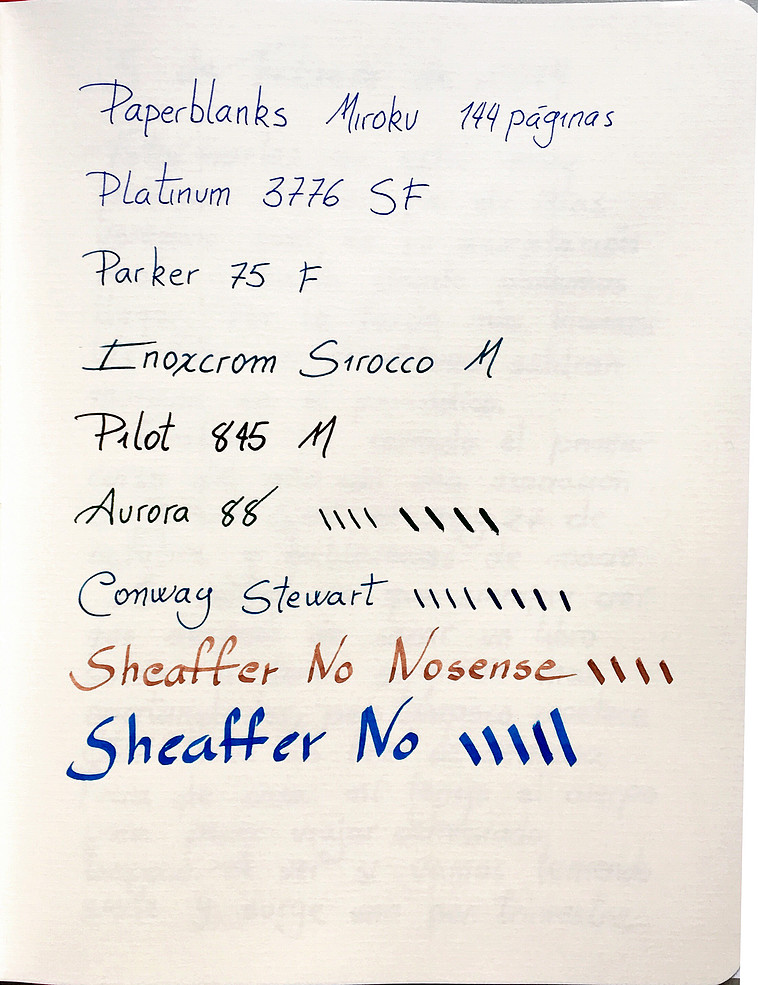 Paperblanks Miroku 144 páginas
Platinum 3776 SF
Parker 75 F
Inoxcrom Sirocco M
Pilot 845 M
Aurora 88
Conway Stewart
Sheaffer No Nosense
Sheaffer No